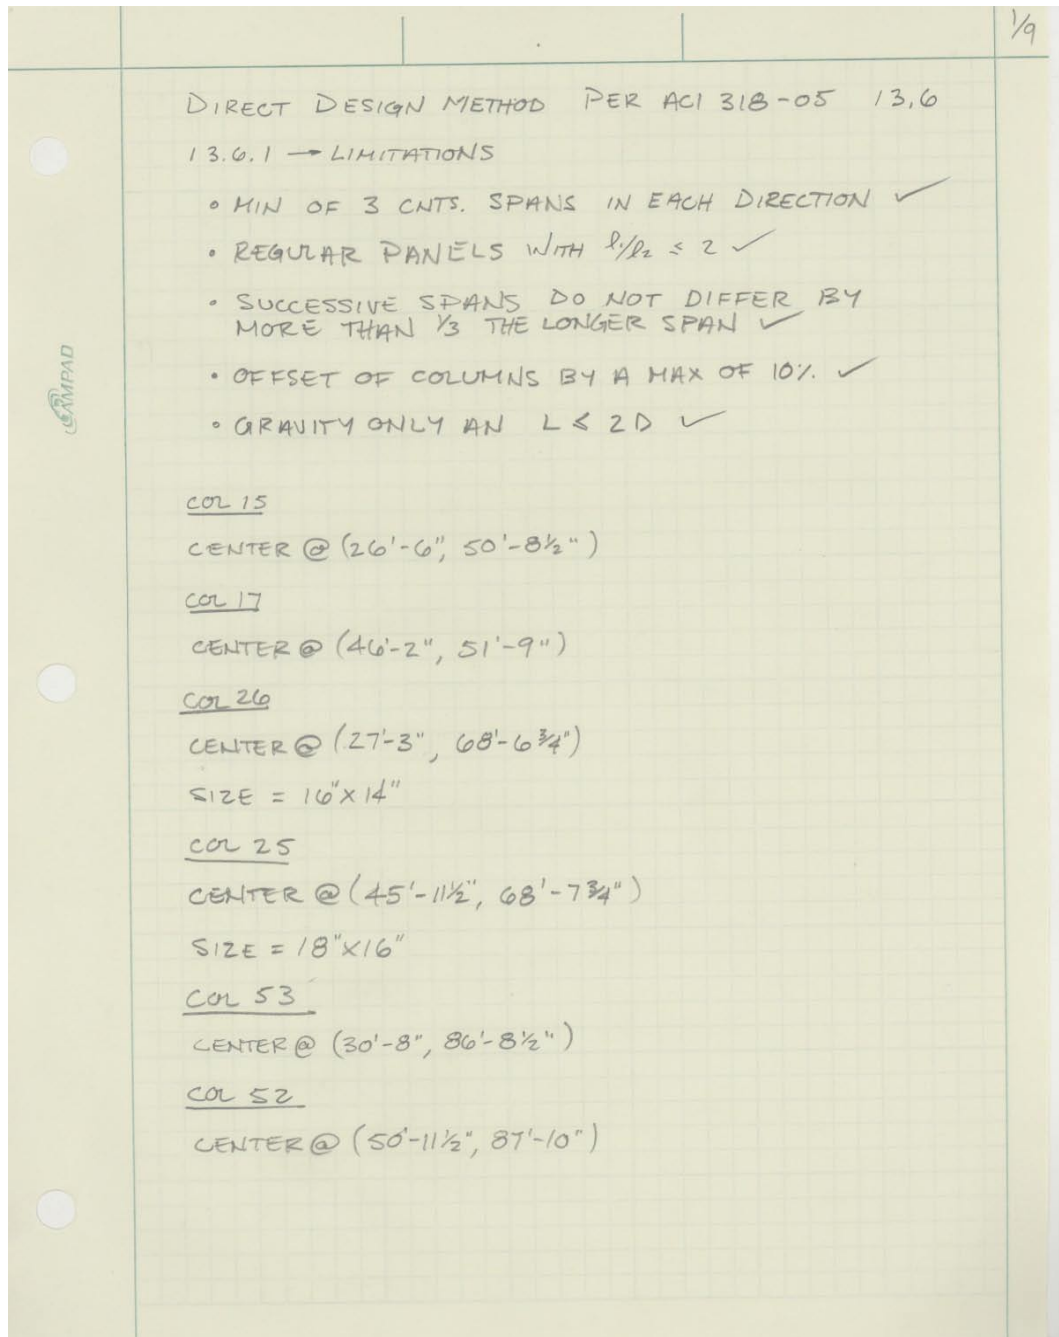 1/9
DIRECT DESIGN METHOD PER ACI 318-05 13.6
13.6.1 → LIMITATIONS
• MIN OF 3 CNTS. SPANS IN EACH DIRECTION ✓
• REGULAR PANELS WITH l₁/l₂ ≤ 2 ✓
• SUCCESSIVE SPANS DO NOT DIFFER BY
MORE THAN 1/3 THE LONGER SPAN ✓
• OFFSET OF COLUMNS BY A MAX OF 10% ✓
AMPAD
• GRAVITY ONLY AN L ≤ 2D ✓
COL 15
CENTER @ (26'-6", 50'-8½")
COL 17
CENTER @ (46'-2", 51'-9")
COL 26
CENTER @ (27'-3", 68'-6¾")
SIZE = 16"X14"
COL 25
CENTER @ (45'-11½", 68'-7¾")
SIZE = 18"X16"
COL 53
CENTER @ (30'-8", 86'-8½")
COL 52
CENTER @ (50'-11½", 87'-10")